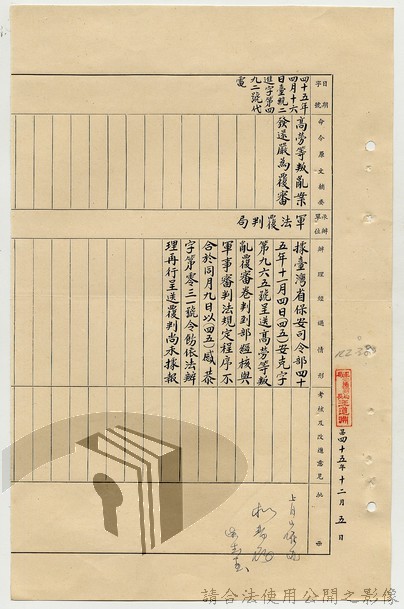 日期
字號
命令原文摘要
承辦單位
辦理經過情形
考核及改進意見
批示
四十五年
四月十六
日臺統二
進字第四
九二號代
電
高勞等叛亂案
發還嚴為覆審
軍法覆判局
據臺灣省保安司令部四十
五年十一月四日(四五)安克字
第九六五號呈送高勞等叛
亂覆審卷判到部經核與
軍事審判法規定程序不
合於同月九日以(四五)
字第零三一號令飭依法辦
理再行呈送覆判尚未據報
四十五年十二月五日
請合法使用公開之影像